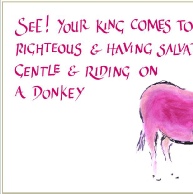 SEE! YOUR KING COMES TO
RIGHTEOUS & HAVING
GENTLE & RIDING ON
A DONKEY